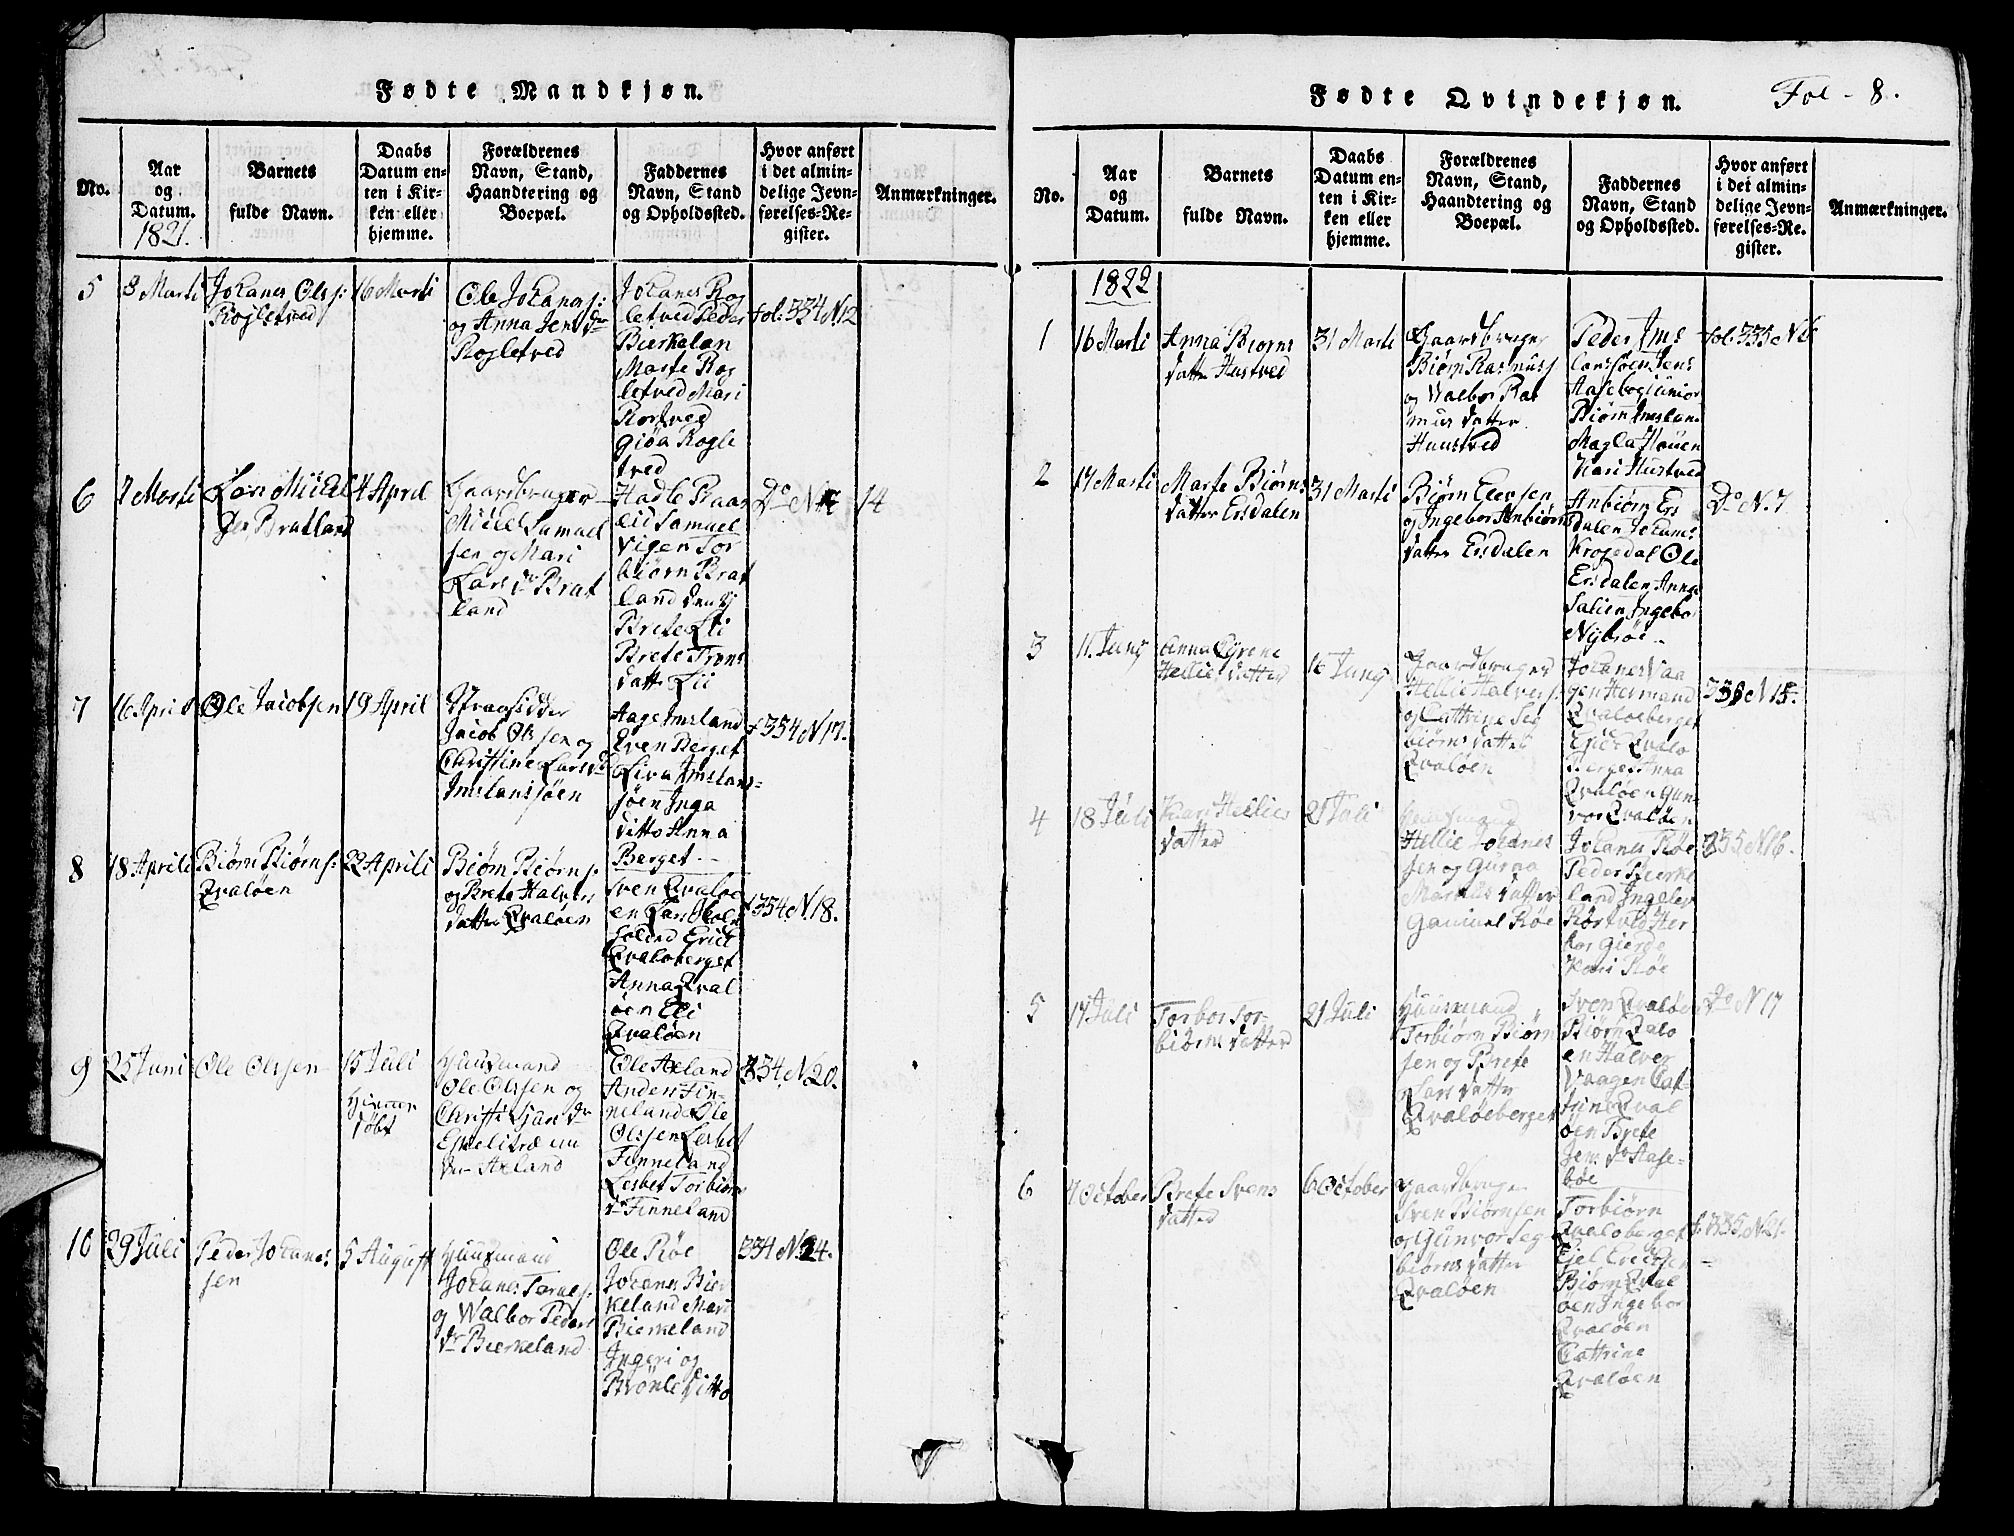 Fødte Mandkjøn.
No.
Aar
og
Datum.
1821.
Barnets
fulde Navn.
Daabs
Datum en-
ten i Kir-
ken eller
hjemme.
Forældrenes
Navn, Stand,
Haandtering og
Boepæl.
Faddernes
Navn, Stand
og Opholdssted.
Hvor anført
i det almin-
delige Jevn-
førelses-Re-
gister.
Anmærkninger.
5
8 Marti
Johanes Ols s:
Rogletved
16 Marti
Ole Johanes s:
og Anna Jens dr
Rogletved
Johanes Rog
letved Peder
Bierkelan
Marte Rog
letved Mari
Rortved
Giøa Rogle
tved
fol: 334 N 12
6
7 Marti
Lars Mickel
sen Bratland
4 April
Gaardbruger
Mickel Samuel
sen og Mari
Lars dr Brat
land
Hadle Raas
eid Samuel
Vigen Tor
biørn Brat
land
Brete Lii
Brete Trons
datter Lii
Do N
14
7
16 April
Ole Jacobsen
19 April
Strandsidder
Jacob Olssen og
Christine Lars dr
Imslansjøen
Aage Imsland
Even Berget
Liva Imslans-
jøen Inga
ditto Anna
Berget
f 334 N 17.
8
18 Aprili
Biørn Biørns:
Qvaløen
22 Aprili
Biørn Biørns.
og Brete Halvers
datter Qvaløen
Sven Qvaløe
en Lars
Eric
Qvaløberget
Anna Qval
øen Eli
Qvaløen
f 334 N 18.
9
25 Juni
Ole Olssen
15 Juli
Hiemme
døbt
Huusmand
Ole Olssen og
Christi
Axeland
Ole Axeland
Anders Fin-
neland Ole
Olssen Lesbet
Finneland
Lesbet Torbiørns
dr Finneland
334 N 20.
10
29 Juli
Peder Johanes
sen
5 August
Huusmand
Johanes
og Walbor Peders
dr Bierkeland
Ole Røe
Johanes Bier
keland Mari
Bierkeland
Ingeri og
Brønle ditto
334 N 24.
Fødte Qvindekjøn.
Fol - 8.
No.
Aar
og
Datum.
Barnets
fulde Navn.
Daabs
Datum en-
ten i Kir-
ken eller
hjemme.
Forældrenes
Navn, Stand,
Haandtering og
Boepæl.
Faddernes
Navn, Stand
og Opholdssted.
Hvor anført
i det almin-
delige Jevn-
førelses-Re-
gister.
Anmærkninger.
1822
1
16 Marti
Anna Biørns
datter Hustved
31 Marti
Gaardbruger
Biørn Rasmus s
og Valbor Ras
mus datter
Huustved
Peder Ims
lansjøen Jens
Aasebøe junior
Biørn Imslan
Magla Hauen
Kari Hustved
fol. 335 N 6
2
17 Marti
Marte Biørns
datter Ersdalen
31 Marti
Biørn Eversen
og Ingebor Anbiørns
datter Ersdalen
Anbiørn Ers
dalen Johanes
Krogedal Ole
Ersdalen Anna
Salien Ingebor
Nybrøe
Do N. 7
3
11. Juny
Anna Cyrene
Hellies datter
16 Juny
Gaardbruger
Hellie Halvers.
og Cattrine Seg
biørns datter
Qvaløen
Johanes Vaa
gen Hermand
Qvaløeberget
Eric Qvalø
berget Anna
Qvaløen Gun
vor Qvaløen
335 N 15.
4
18 Juli
Kari Hellies
datter
21 Juli
Huusmand
Hellie Johanes
sen og Guroa
Markus datter
Gammel Røe
Johanes Røe
Peder Bierke
land Ingelev
Rortved Her
bor Gierde
Kari Røe
335 N 16.
5
17 Juli
Torbor Tor-
biørns datter
21 Juli
Huusmand
Torbiørn Biørn
sen og Brete
Lars datter
Qvaløeberget
Sven Qvaløen
Biørn Qvalø
en Halver
Vaagen Cat-
trine Qval
øen Brete
Jens dr Aase-
bøe
Do N 17
6
4 October
Brete Svens
datter
6 October
Gaardbruger
Sven Biørnsen
og Gunvor Seg
biørns datter
Qvaløen
Torbiørn
Qvaløberget
Giel Ericksen
Biørn Qval
øen Ingebor
Qvaløen
Cattrine
Qvaløen
f. 335, N 21.